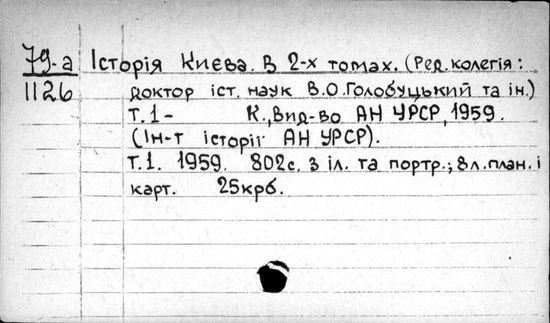 79-а Історія Києва. В 2-х томах. (Ред. колегія:
1126 доктор іст. наук В.О. Голобуцький та ін.)
т. 1 - К., Вид-во АН УРСР, 1959.
(Ін-т історії АН УРСР).
т. 1. 1959. 802с. з іл. та портр.; 8л. план. і
карт. 25крб.